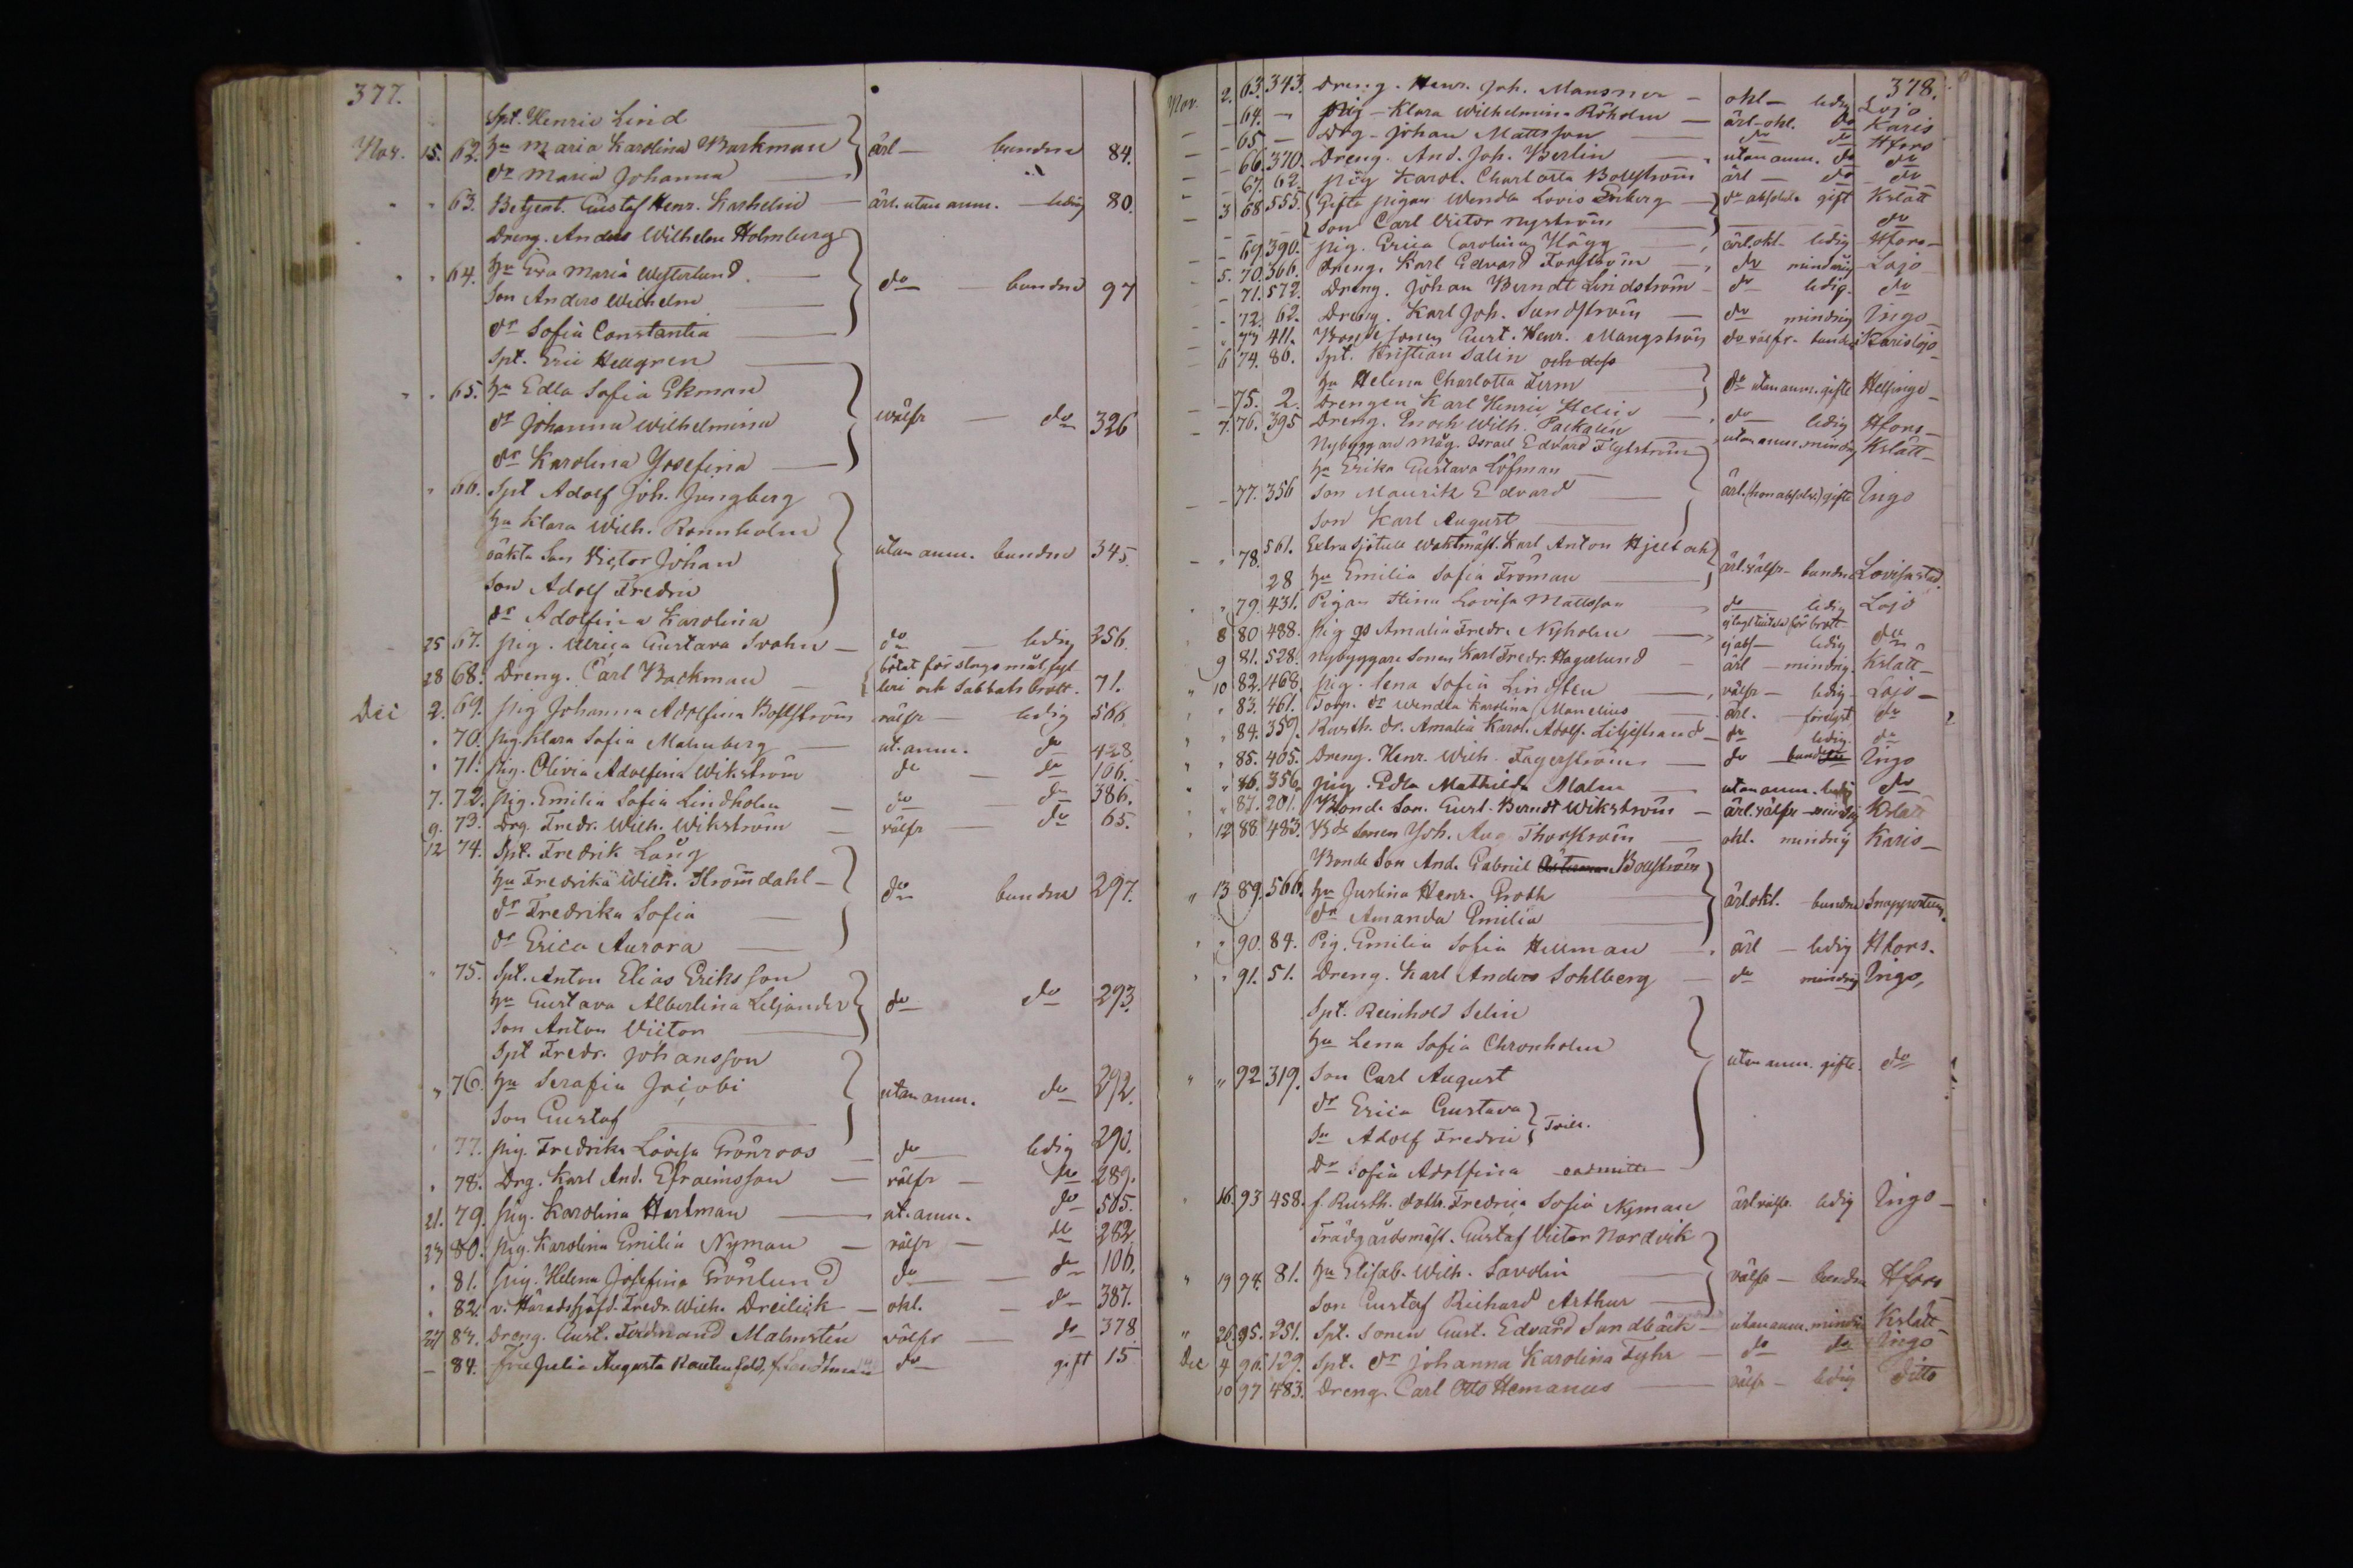 377.
Spt. Henric Lind
Nov. 15. 62. hu Maria Karolina Backman ärl — bundna 84.
dr Maria Johanna
" " 63. Betjent. Gustaf Henr. Karhelin ärl. utan anm. — ledig 80.
Dreng. Anders Wilhelm Holmberg
" " 64. hu Eva Maria Westerlund do — bundna 97
Son Anders Wilhelm
dr Sofia Constantia
Spt. Eric Hellgren
" " 65. hu Edla Sofia Ekman
dr Johanna Wilhelmina wälfr — do 326
dr Karolina Josefina
" 66. Spt Adolf Joh. Ljungberg
hu Klara Wilh. Rönnholm
oäkta Son Victor Johan utan anm. bundna 345.
Son Adolf Fredric
dr Adolfina Karolina
25 67. pig. Ulrica Gustava Svahn — do — ledig 356.
28 68. Dreng. Carl Backman — bötat för slagsmål, fyl-
leri och Sabbats brott. 71.
Dec 2. 69. pig Johanna Adolfina Bollström välfr — ledig 566.
" 70. pig. Klara Sofia Malmberg — ut. anm. do 428
" 71. pig. Olivia Adolfina Wikström do — do 106.
7. 72. pig. Emilia Sofia Lindholm — do — do 386.
9. 73. Drg. Fredr. Wilh. Wikström — välfr — do 65.
12 74. Spt. Fredrik Lång
hu Fredrika Wilh. Strömdahl — do bundna 297.
dr Fredrika Sofia —
dr Erica Aurora —
" 75. Spt. Anton Elias Eriksson
hu Gustava Albertina Liljander do do 293.
Son Anton Victor
Spt Fredr. Johansson
" 76. hu Serafia Jacobi utan anm. do 292.
Son Gustaf
" 77. pig. Fredrika Lovisa Grönroos — do — ledig 290.
" 78. Drg. Karl And. Efraimsson — välfr — do 289.
21. 79. pig. Karolina Hartman — ut. anm. do 505.
23 80. pig. Karolina Emilia Nyman — välfr — do 282.
" 81. pig. Helena Josefina Grönlund do — do 106.
" 82. v. Häradshöfd. Fredr. Wilh. Dreilick — okl. — do 387.
27 83. Dreng. Gust. Ferdinand Malmstén välfr — do 378
— 84. Fru Julia Augusta do — gift 15
378.
Nov. 2. 63. 343. Dreng. Henr. Joh. Mansner — okl — ledig Lojo
— 64. — pig — Klara Wilhelmina Röholm — ärl-okl. do Karis
— 65 — Drg — Johan Mattsson — do do Hfors
— 66. 370. Dreng. And. Joh. Berlin — utan anm. do do
— 67. 62. pig Karol. Charlotta Bollström ärl — do do
— 3 68 555. Gifta pigan Wenda Lovis Enberg — do absolv. gift Kslätt
Son Carl Victor Nyström — do
— 69. 390. pig. Erica Carolina Hägg — ärl. okl. ledig Hfors —
— 5. 70. 366. Dreng. Karl Edvard Forsström — do mindrig Lojo
— 71. 572. Dreng. Johan Berndt Lindström — do ledig. do
— 72. 62. Dreng. Karl Joh. Sundström — do mindrig Ingo —
— 73 411. Bonde sonen Gust. Henr. Mangström do välfr. bunden Karislojo
— 6 74. 86. Spt. Kristian Salin och dess
hu Helena Charlotta Term do utan anm. gifte Helsinge —
— 75. 2. Drengen Karl Henric Helin — do — ledig Hfors —
— 7. 76. 395 Dreng. Enoch Wilh. Packalen utan anm. mindrig Kslätt —
Nybyggare måg. Israel Edvard Flytström
hu Erika Gustava Löfman
— 77. 356 Son Mauritz Edvard ärl. (hon absolv.) gifte Ingo
Son Karl August
561. Extra Sjötull Waktmäst. Karl Anton Hjelt och
— " 78. ärl. välfr — bundna Lovisa stad.
28 hu Emilia Sofia Froman
" " 79. 431. Pigan Stina Lovisa Mattsson do ledig Lojo
8 80 488. pig Amalia Fredr. Nyholm — ej abs — ledig do
9 81. 528. Nybyggare Sonen Karl Fredr. Hagelund — ärl — mindrig. Kslätt —
" 10 82. 468. pig. Lena Sofia Lindsten — välfr — ledig Lojo —
" " 83. 461. Torp. dr Wendla Karolina Manelius ärl. — förelyst do
" " 84. 359. Rusth. dr. Amalia Karol. Adolf. Liljestrand — do ledig. do
" " 85. 405. Dreng. Henr. Wilh. Fagerström — do bunden Ingo
" " 86. 356. pig. Edla Mathilda Malm — utan anm. ledig do
" " 87. 201. Bonde Son. Gust. Berndt Wikström — ärl. välfr — mindrig Kslätt
" 12 88 483. Bde Sonen Joh. Aug Thorström — okl. mindrig Karis —
Bonde Son And. Gabriel Österman Bollström
" 13 89. 566. hu Justina Henr. Groth ärl. okl. bundna Snappertuna.
dr Amanda Emilia
" " 90. 84. Pig. Emilia Sofia Hellman — ärl — ledig Hfors.
" " 91. 51. Dreng. Karl Anders Sohlberg — do mindrig Ingo,
Spt. Reinhold Selin
hu Lena Sofia Chronholm
" " 92. 319. Son Carl August utan anm. gifte. do
dr Erica Gustava
Sn Adolf Fredric Tvill.
Dr Sofia Adolfina
" 16. 93 458. f. Rusth. dotter. Fredrica Sofia Nyman ärl välfr. ledig Ingo —
Trädgårdsmäst. Gustaf Victor Nordvik
" 19 94. 81. hu Elisab. Wilh. Savolin — välfr — bundna Hfors
Son Gustaf Richard Arthur —
" 26. 95. 251. Spt. Sonen Gust. Edvard Sundbäck — utan anm. mindr. Kslätt
Dec 4 96. 129. Spt. dr Johanna Karolina Fyhr — do do Ingo
10 97 483. Dreng. Carl Otto Hemanus — välfr — ledig Ditto